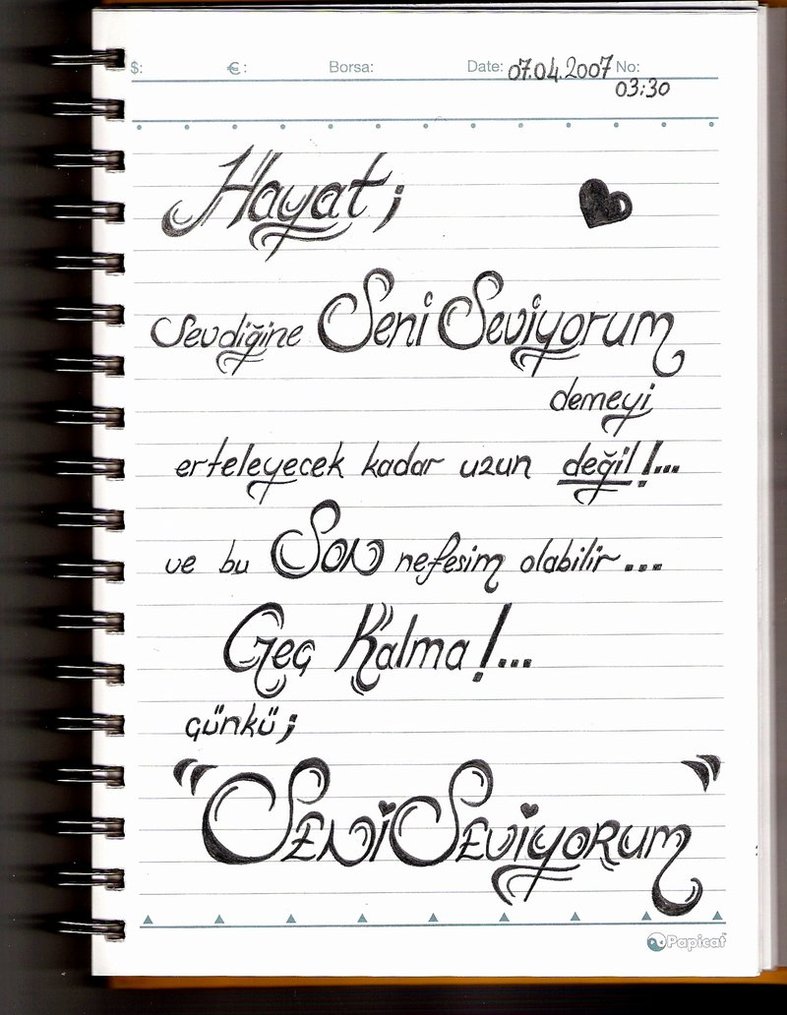 $: €: Borsa: Date: 07.04.2007 No:
03:30
Hayat;
Sevdiğine Seni Seviyorum
demeyi
erteleyecek kadar uzun değil!...
ve bu Son nefesim olabilir...
Geç Kalma!...
çünkü;
"SENİ SEviyoRum"
Papicat